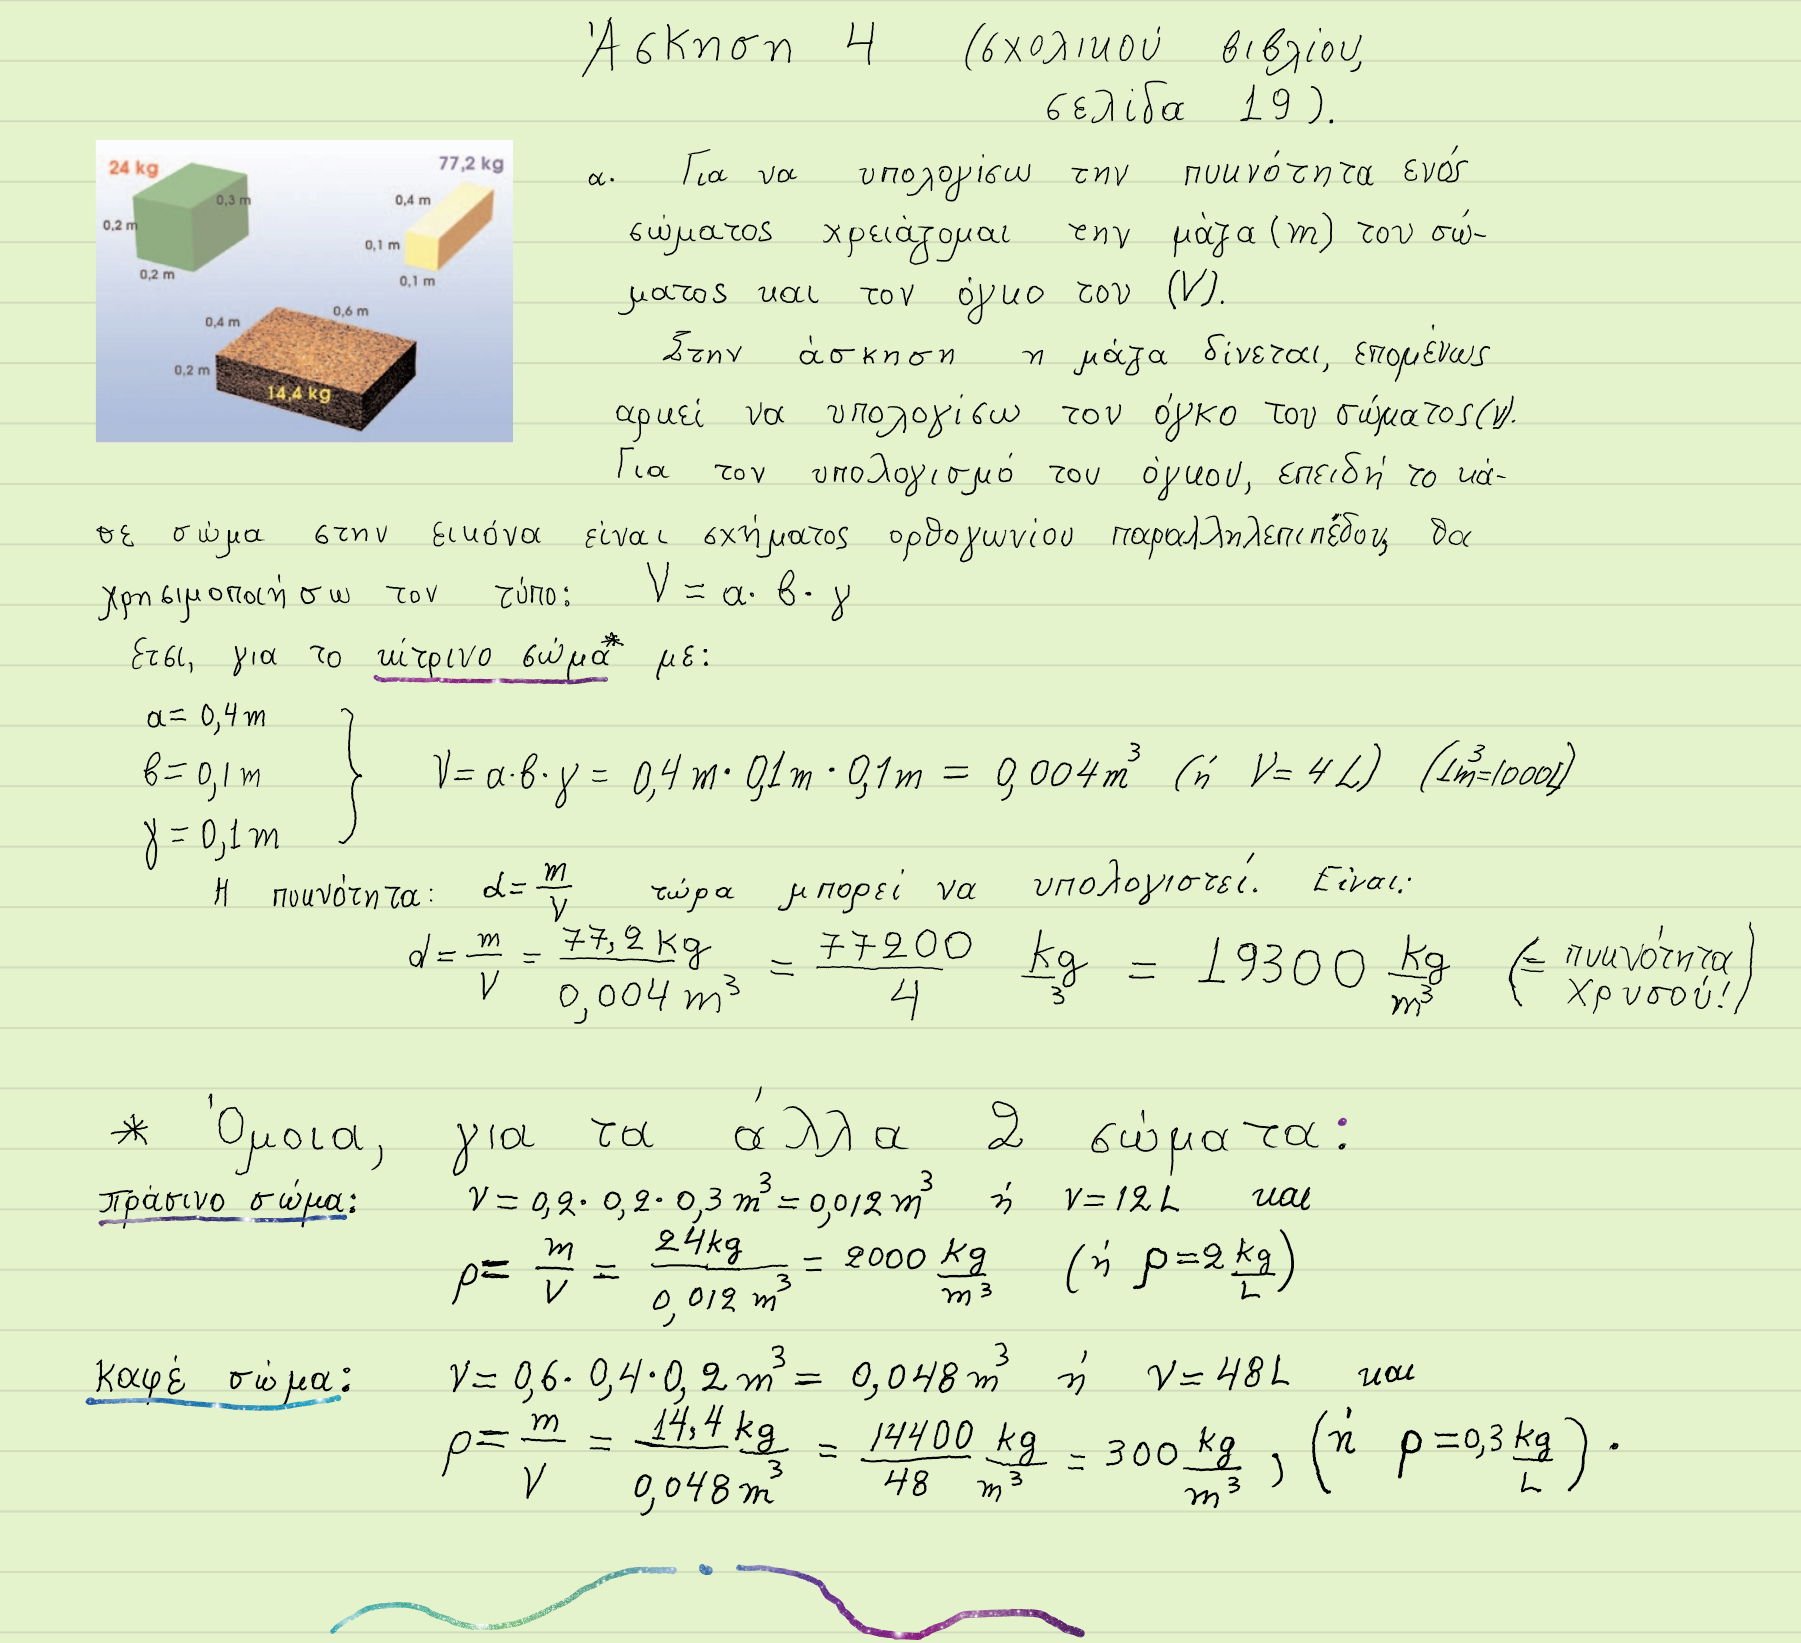 Άσκηση 4 (σχολικού βιβλίου,
σελίδα 19).
24 kg
0,3 m
0,2 m
0,2 m
77,2 kg
0,4 m
0,1 m
0,1 m
0,6 m
0,4 m
0,2 m
14,4 kg
α. Για να υπολογίσω την πυκνότητα ενός
σώματος χρειάζομαι την μάζα (m) του σώ-
ματος και τον όγκο του (V).
Στην άσκηση η μάζα δίνεται, επομένως
αρκεί να υπολογίσω τον όγκο του σώματος (V).
Για τον υπολογισμό του όγκου, επειδή το κά-
θε σώμα στην εικόνα είναι σχήματος ορθογωνίου παραλληλεπιπέδου, θα
χρησιμοποιήσω τον τύπο: V = α · β · γ
Ετσι, για το κίτρινο σώμα* με:
α = 0,4 m
β = 0,1 m
γ = 0,1 m
V = α · β · γ = 0,4 m · 0,1 m · 0,1 m = 0,004 m³ (ή V = 4 L) (1m³=1000L)
Η πυκνότητα: d = m/V τώρα μπορεί να υπολογιστεί. Είναι:
d = m/V = 77,2 kg / 0,004 m³ = 77200/4 kg/³ = 19300 kg/m³ (= πυκνότητα χρυσού!)
* Όμοια, για τα άλλα 2 σώματα:
πράσινο σώμα: V = 0,2 · 0,2 · 0,3 m³ = 0,012 m³ ή V = 12 L και
ρ = m/V = 24 kg / 0,012 m³ = 2000 kg/m³ (ή ρ = 2 kg/L)
καφέ σώμα: V = 0,6 · 0,4 · 0,2 m³ = 0,048 m³ ή V = 48 L και
ρ = m/V = 14,4 kg / 0,048 m³ = 14400/48 kg/m³ = 300 kg/m³, (ή ρ = 0,3 kg/L).